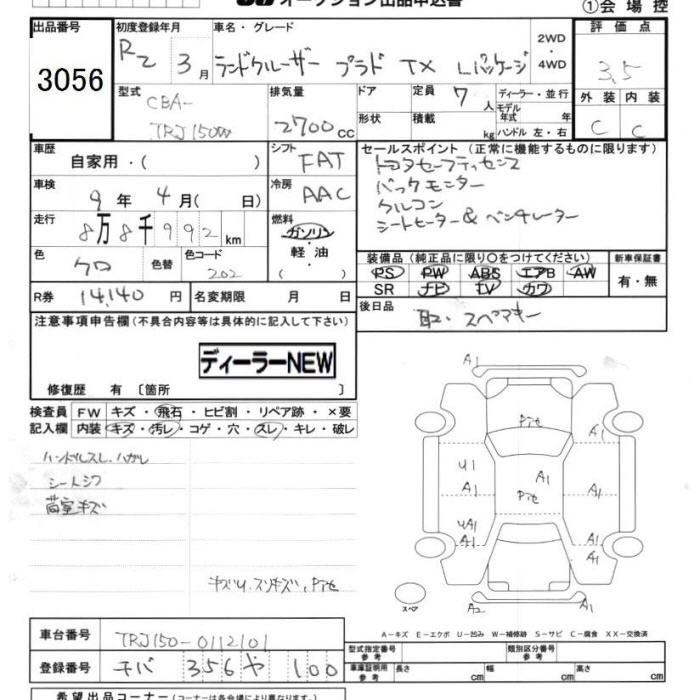 オークション出品申込書
①会場控
出品番号
3056
初度登録年月
R2 3月
車名・グレード
ランドクルーザー プラド TX Lパッケージ
2WD
・
4WD
評価点
3.5
型式
CBA-
TRJ150W
排気量
2700cc
ドア
形状
定員 7人
積載 kg
ディーラー・並行
モデル
年式 年
ハンドル 左・右
外装 内装
C C
車歴
自家用・( )
シフト
FAT
セールスポイント(正常に機能するものに限ります)
トヨタセーフティセンス
バックモニター
クルコン
シートヒーター&ベンチレーター
車検
9年4月(日)
冷房
AAC
走行
8万8千992km
燃料
ガソリン
・
軽油
・
( )
色
クロ
色替
色コード
202
装備品(純正品に限り〇をつけてください)
PS PW ABS エアB AW
SR ナビ TV カワ
新車保証書
有・無
R券 14,140円
名変期限 月 日
後日品
取・スペアキー
注意事項申告欄(不具合内容等は具体的に記入して下さい)
ディーラーNEW
修復歴 有〔箇所 〕
検査員
記入欄
FW キズ・飛石・ヒビ割・リペア跡・×要
内装 キズ・汚レ・コゲ・穴・スレ・キレ・破レ
ハンドルスレ、ハガレ
シートシワ
荷室キズ
A1
A1
U1
A1
A1
A1
UA1
A1
A1
A1
A2
スペア
A-キズ E-エクボ U-凹み W-補修跡 S-サビ C-腐食 XX-交換済
車台番号
TRJ150-0112101
登録番号
チバ 356 や 100
型式指定番号
参考
類別区分番号
参考
車庫証明用
参考
長さ cm 幅 cm 高さ cm
希望出品コーナー(コーナーは各会場により異なります。)